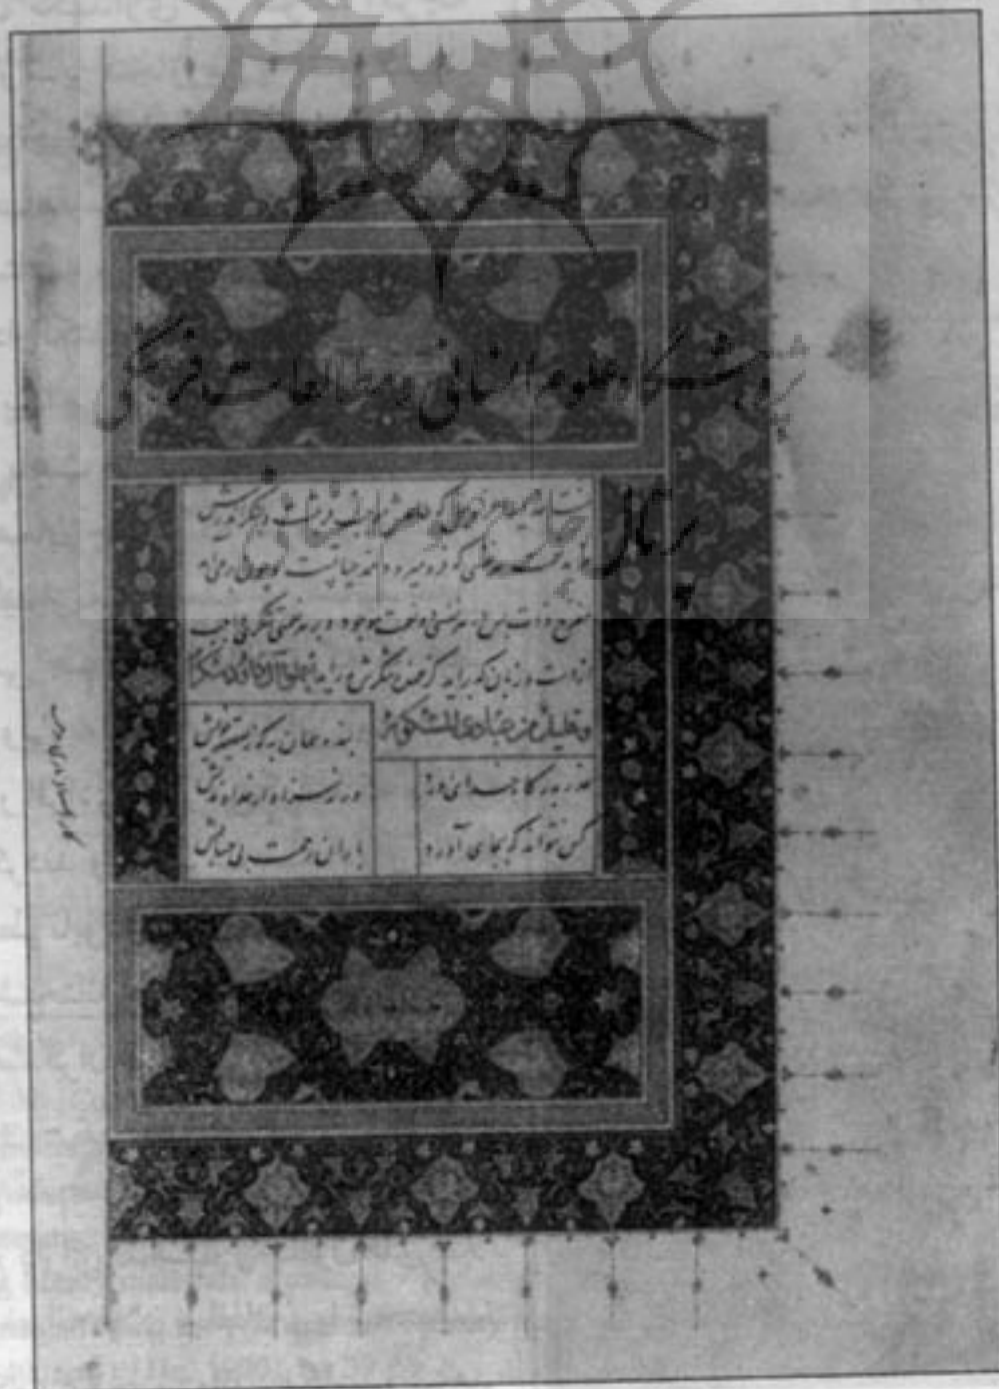 پژوهشگاه علوم انسانی و مطالعات فرهنگی
پرتال جامع علوم انسانی
منت خدایرا عز وجل که طاعتش موجب قربتست و بشکر اندرش
مزید نعمت هر نفسی که فرو میرود ممد حیاتست و چون برمی آید
مفرح ذات پس در هر نفسی دو نعمت موجود و بر هر نعمتی شکری واجب
از دست و زبان که برآید کز عهده شکرش بدر آید اعملوا آل داود شکرا
وقلیل من عبادی الشکور
بنده همان به که ز تقصیر خویش
عذر بدرگاه خدای آورد
ورنه سزاوار خداوندیش
کس نتواند که بجای آورد
باران رحمت بی حسابش